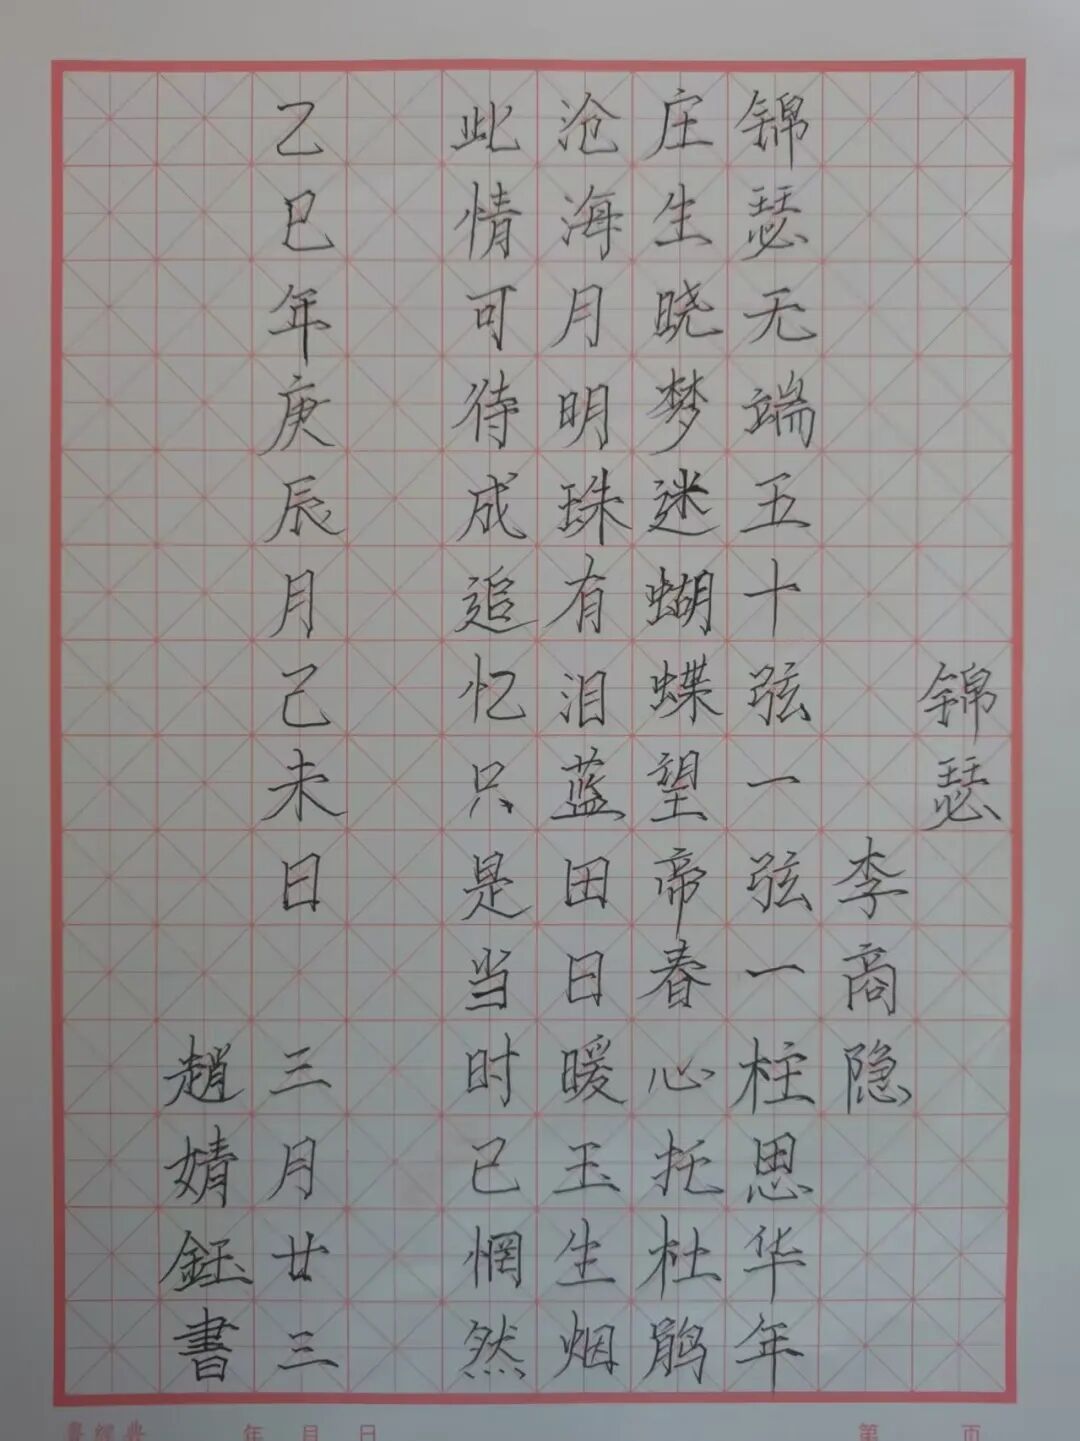 锦瑟
李商隐
锦瑟无端五十弦一弦一柱思华年
庄生晓梦迷蝴蝶望帝春心托杜鹃
沧海月明珠有泪蓝田日暖玉生烟
此情可待成追忆只是当时已惘然
乙巳年庚辰月己未日 三月廿三
趙婧鈺書
年 月 日
第 页